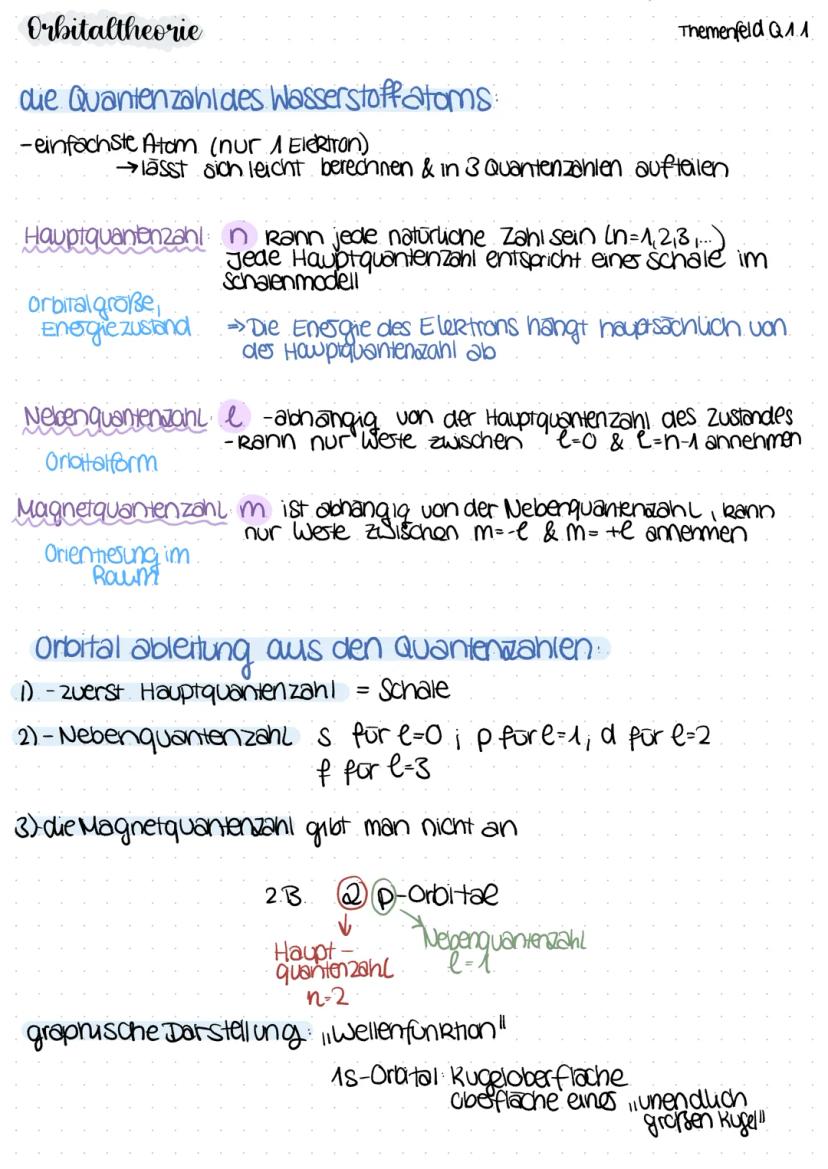 Orbitaltheorie
Themenfeld Q1.1
die Quantenzahl des Wasserstoffatoms:
-einfachste Atom (nur 1 Elektron)
→ lässt sich leicht berechnen & in 3 Quantenzahlen aufteilen
Hauptquantenzahl n kann jede natürliche Zahl sein (n=1,2,3,...)
Jede Hauptquantenzahl entspricht einer Schale im
Schalenmodell
Orbitalgröße,
Energiezustand
⇒ Die Energie des Elektrons hängt hauptsächlich von
der Hauptquantenzahl ab
Nebenquantenzahl: l -abhängig von der Hauptquantenzahl des Zustandes
-kann nur Werte zwischen l=0 & l=n-1 annehmen
Orbitalform
Magnetquantenzahl m ist abhängig von der Nebenquantenzahl, kann
nur Werte zwischen m=-l & m=+l annehmen
Orientierung im
Raum
Orbital ableitung aus den Quantenzahlen:
1) -zuerst Hauptquantenzahl = Schale
2)-Nebenquantenzahl s für l=0 ; p für l=1; d für l=2
f für l=3
3)-die Magnetquantenzahl gibt man nicht an
z.B. 2 p-Orbital
Haupt-
quantenzahl
n=2
Nebenquantenzahl
l=1
graphische Darstellung: „Wellenfunktion"
1s-Orbital: Kugeloberfläche
Oberfläche einer „unendlich
großen Kugel"